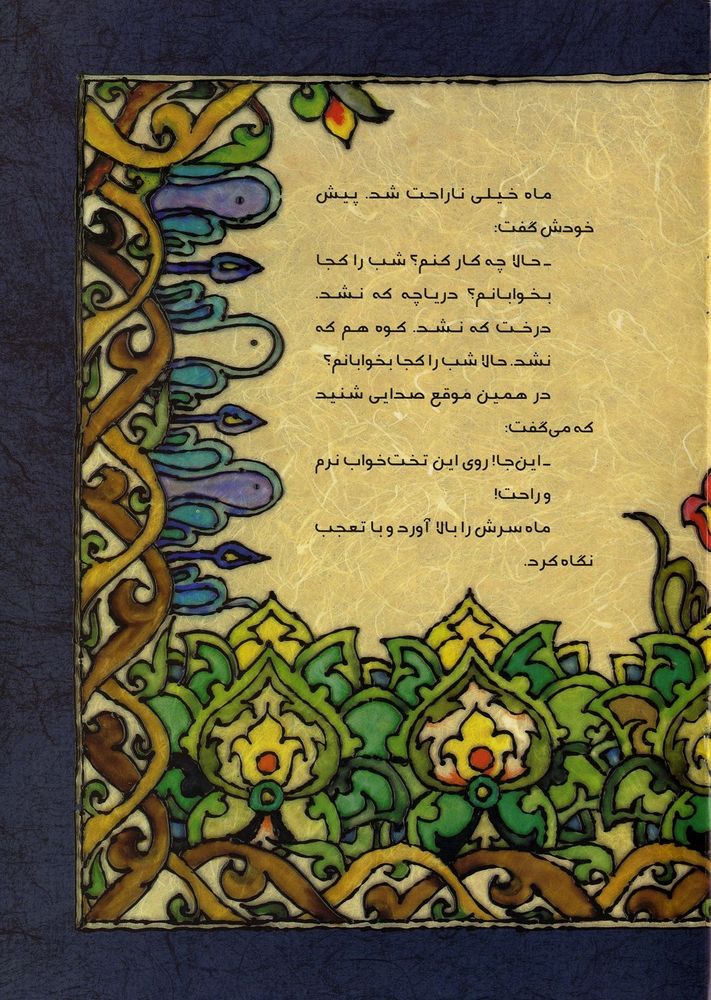 ماه خیلی ناراحت شد. پیش
خودش گفت:
ـ حالا چه کار کنم؟ شب را کجا
بخوابانم؟ دریاچه که نشد.
درخت که نشد. کوه هم که
نشد. حالا شب را کجا بخوابانم؟
در همین موقع صدایی شنید
که می‌گفت:
ـ این‌جا! روی این تخت‌خواب نرم
و راحت!
ماه سرش را بالا آورد و با تعجب
نگاه کرد.